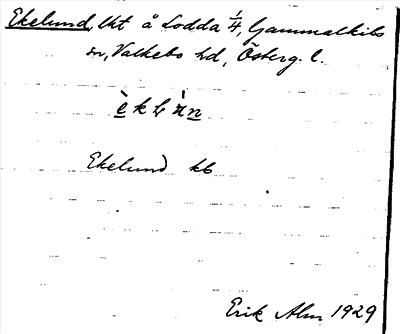 Ekelund, lht å Lodda 1/4, Gammalkils
sn, Valkebo hd, Österg. l.
Ekelund kb
Erik Alm 1929